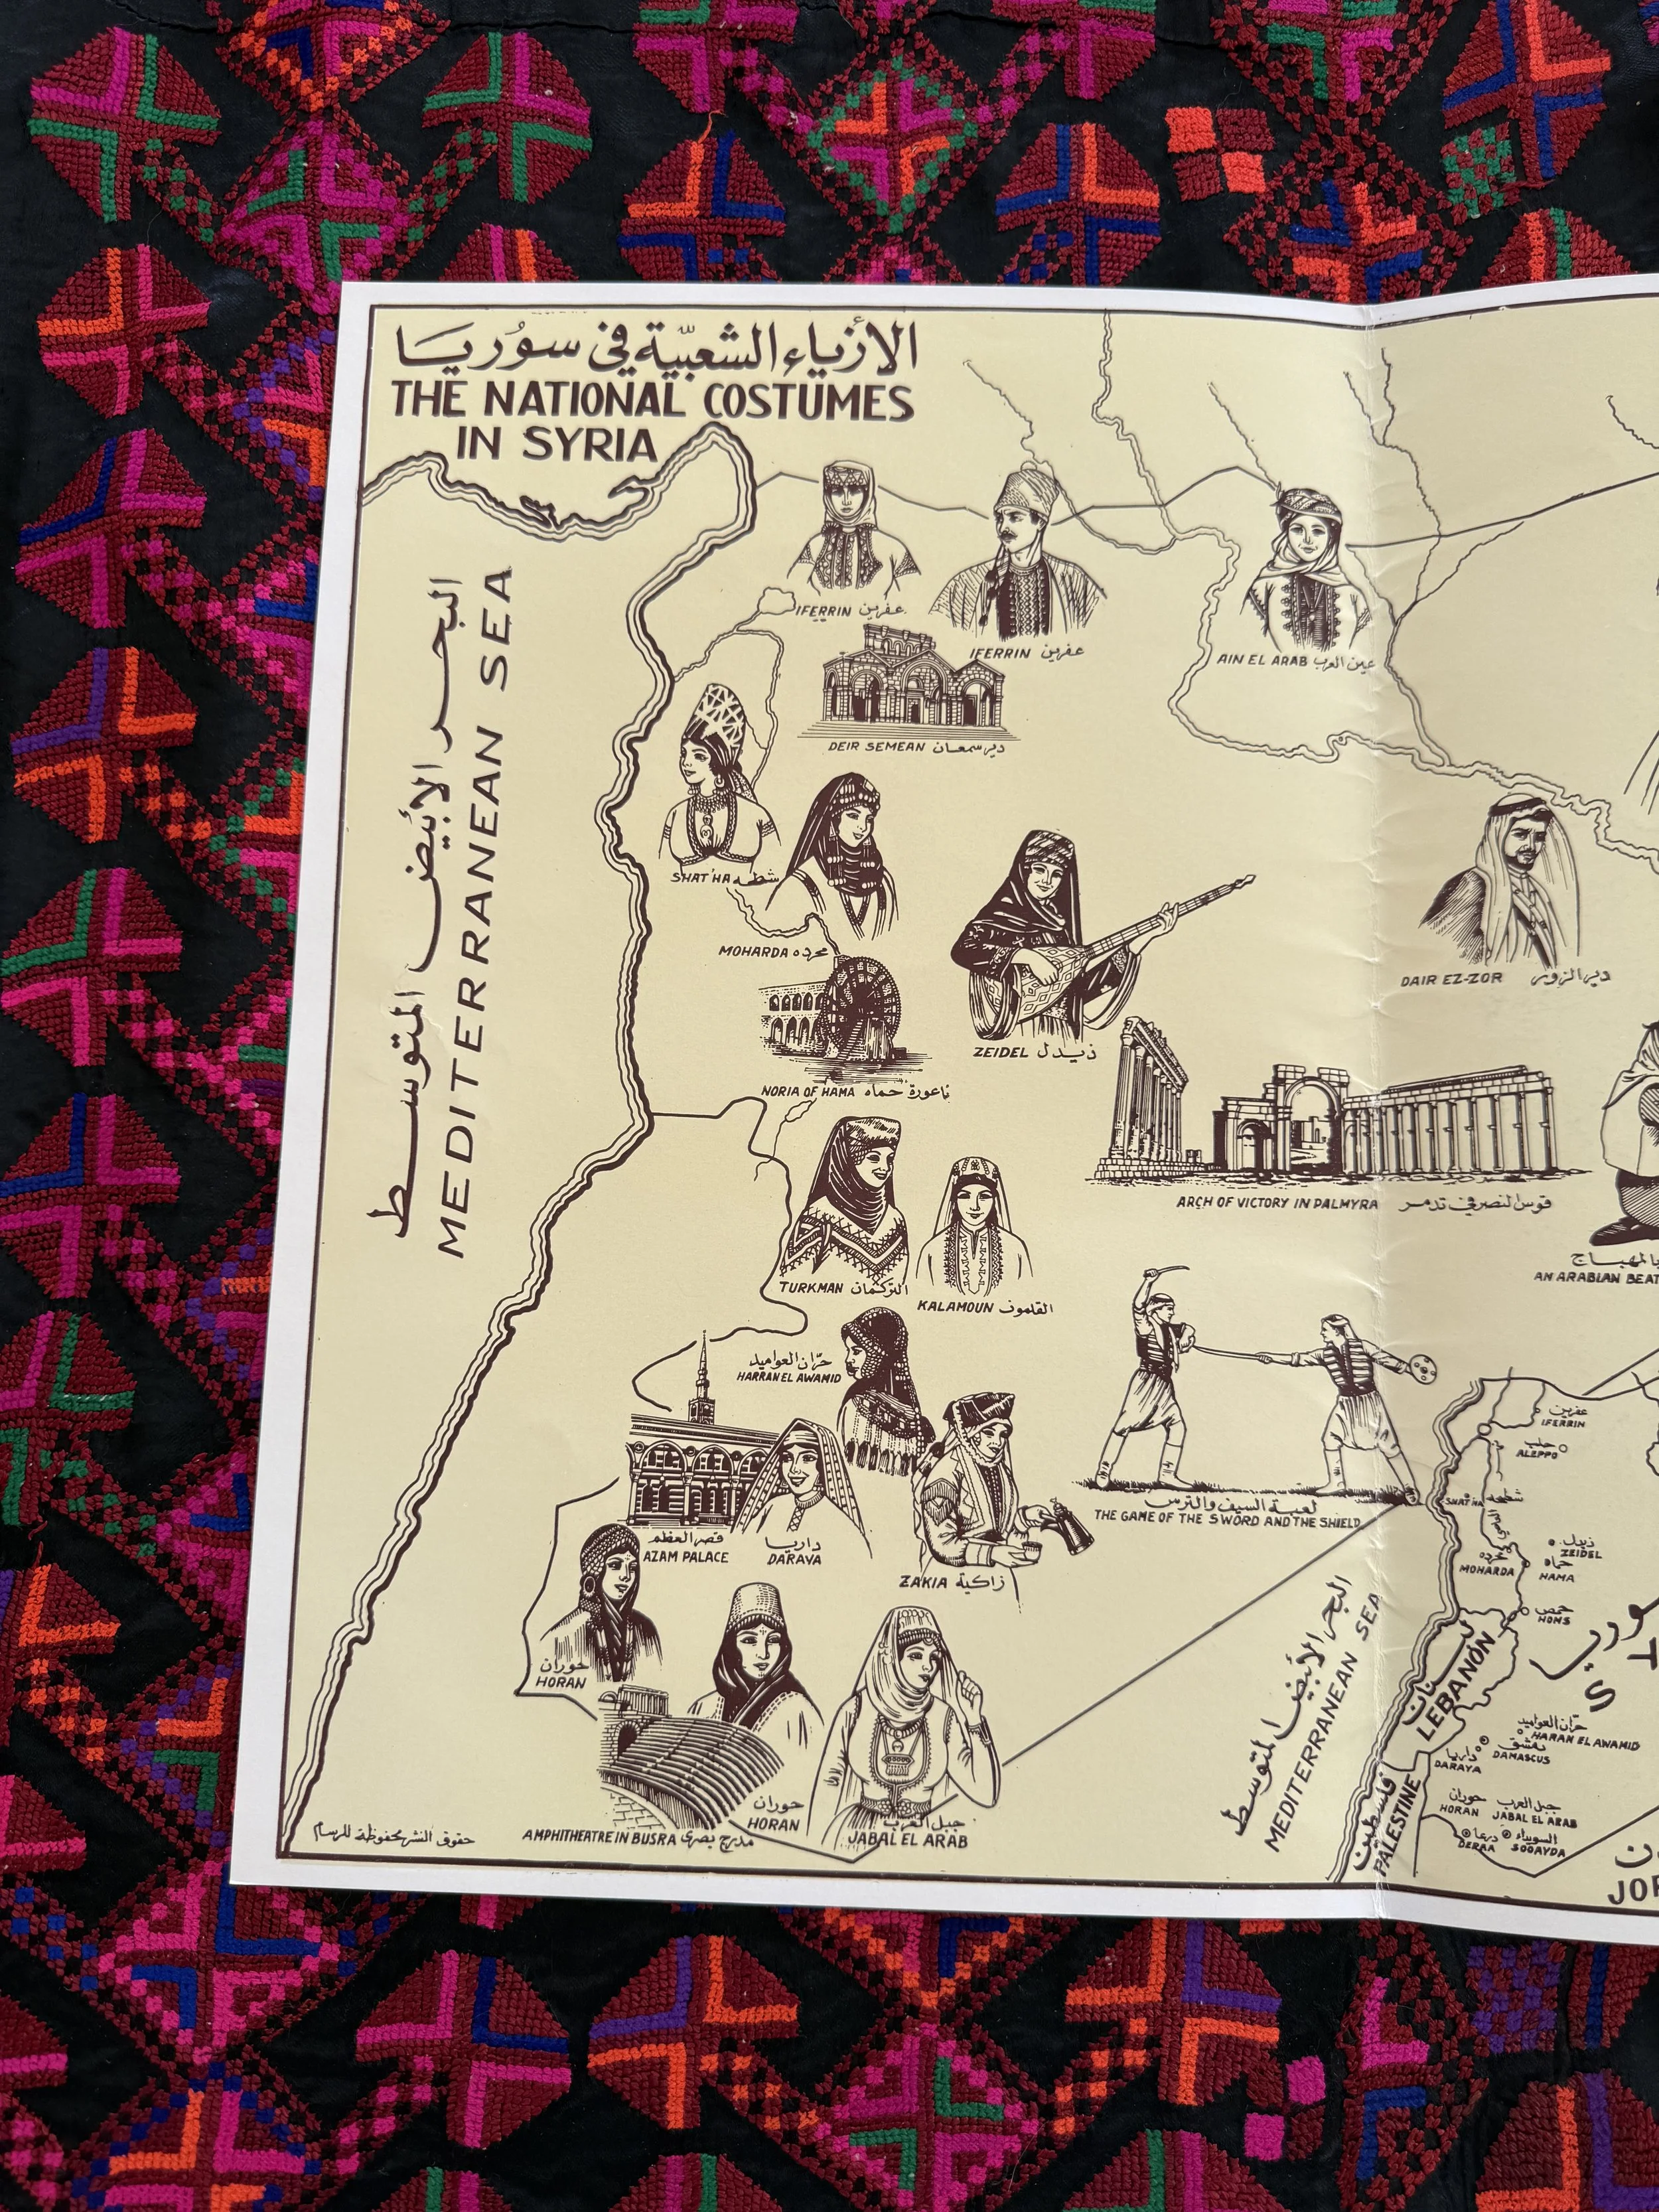 الأزياء الشعبيّة في سوُريا
THE NATIONAL COSTUMES
IN SYRIA
البحر الأبيض المتوسط
MEDITERRANEAN SEA
IFERRIN عفرين
IFERRIN عفرين
AIN EL ARAB عين العرب
DEIR SEMEAN ديرسمعان
SHAT'HA شطحه
MOHARDA محرده
ZEIDEL زيدل
DAIR EZ-ZOR ديرالزور
NORIA OF HAMA ناعورة حماه
ARCH OF VICTORY IN PALMYRA قوس النصر في تدمر
TURKMAN التركمان
KALAMOUN القلمون
بالمهباج
AN ARABIAN BEAT
حرّان العواميد
HARRAN EL AWAMID
لعبة السيف والترس
THE GAME OF THE SWORD AND THE SHIELD
قصر العظم
AZAM PALACE
داريا
DARAYA
ZAKIA زاكية
حوران
HORAN
حوران
HORAN
AMPHITHEATRE IN BUSRA مدرج بصرى
جبل العرب
JABAL EL ARAB
حقوق النشر محفوظة للرسام
البحر الأبيض المتوسط
MEDITERRANEAN SEA
عفرين
IFERRIN
حلب
ALEPPO
SHAT'HA شطحه
زيدل
ZEIDEL
محرده
MOHARDA
حماه
HAMA
حمص
HOMS
لبنان
LEBANON
سوريا
S
حرّان العواميد
HARAN EL AWAMID
دمشق
DAMASCUS
داريا
DARAYA
حوران
HORAN
جبل العرب
JABAL EL ARAB
درعا
DERAA
السويداء
SOOAYDA
فلسطين
PALESTINE
JOR